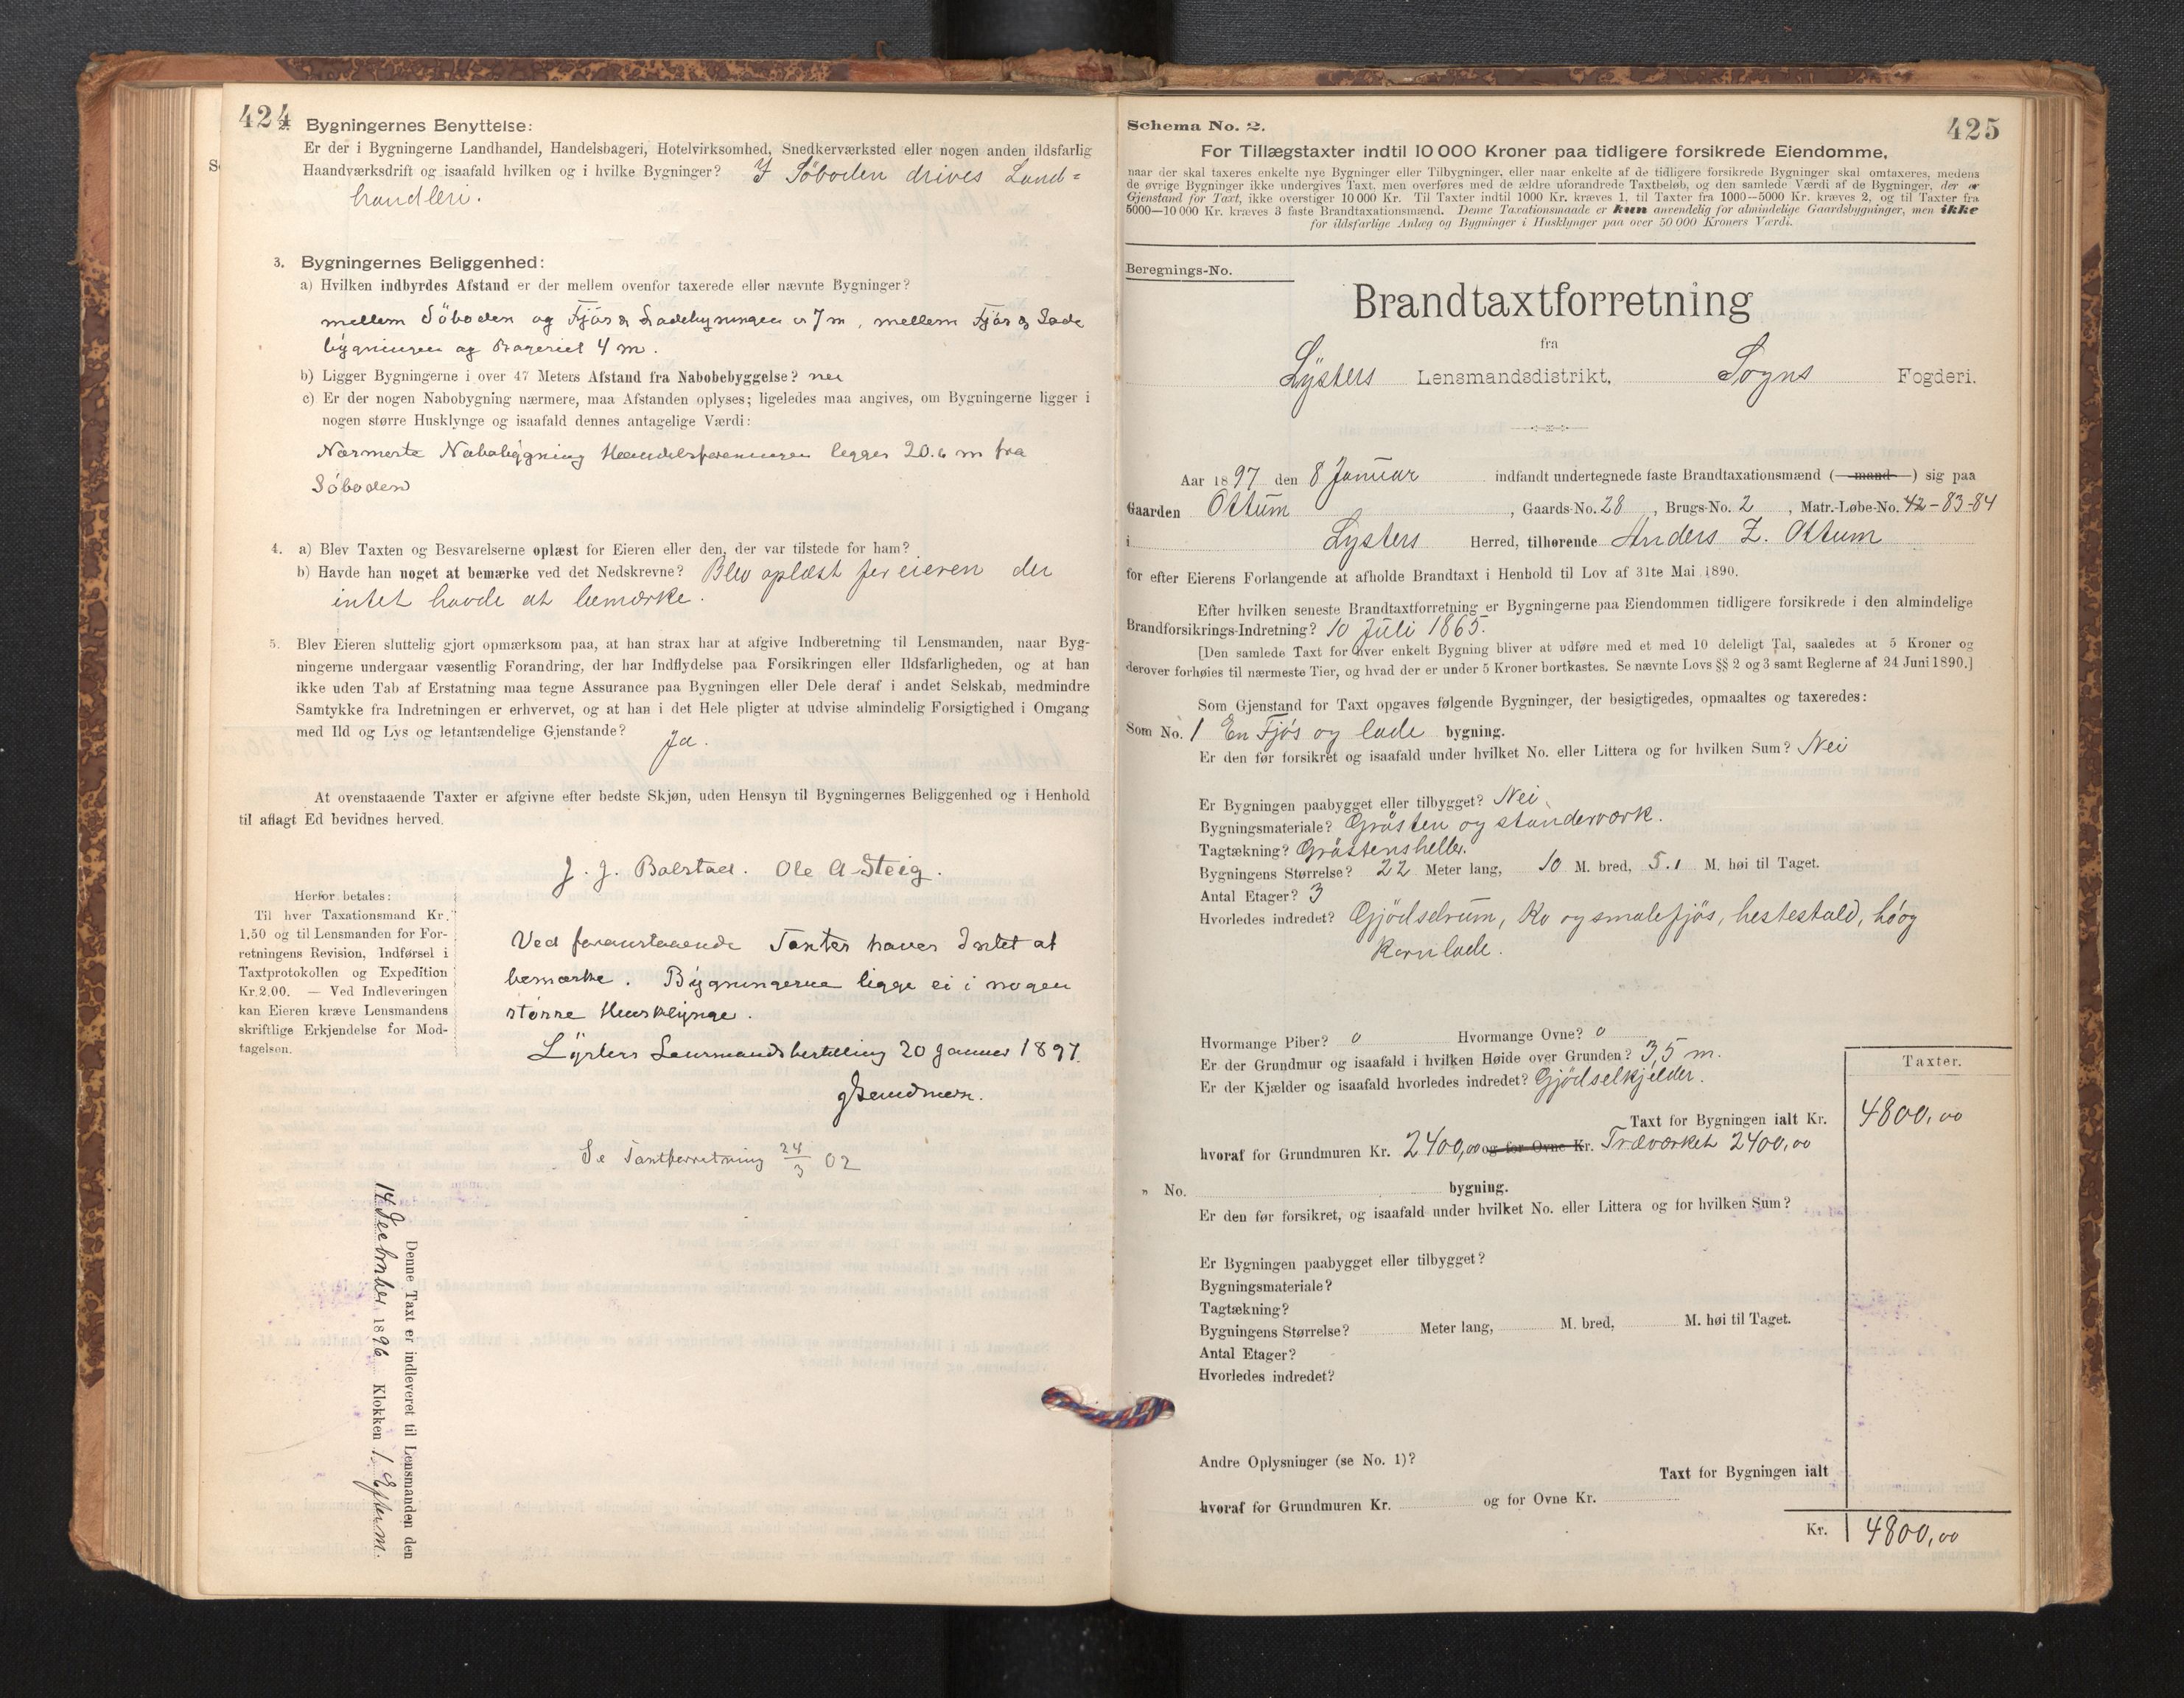 424
2. Bygningernes Benyttelse:
Er der i Bygningerne Landhandel, Handelsbageri, Hotelvirksomhed, Snedkerværksted eller nogen anden ildsfarlig
Haandværksdrift og isaafald hvilken og i hvilke Bygninger? I Söboden drives Land=
handleri.
3. Bygningernes Beliggenhed:
a) Hvilken indbyrdes Afstand er der mellem ovenfor taxerede eller nævnte Bygninger?
mellem Söboden og Fjös & Ladebygningen er 7 m, mellem Fjös & Lade
bygningen og Bageriet 4 m.
b) Ligger Bygningerne i over 47 Meters Afstand fra Nabobebyggelse? nei
c) Er der nogen Nabobygning nærmere, maa Afstanden oplyses; ligeledes maa angives, om Bygningerne ligger i
nogen større Husklynge og isaafald dennes antagelige Værdi:
Nærmeste Nabobygning Handelsforeningen ligger 20.6 m fra
Söboden
4. a) Blev Taxten og Besvarelserne oplæst for Eieren eller den, der var tilstede for ham?
b) Havde han noget at bemærke ved det Nedskrevne? Blev oplæst for eieren der
intet havde at bemærke.
5. Blev Eieren sluttelig gjort opmærksom paa, at han strax har at afgive Indberetning til Lensmanden, naar Byg-
ningerne undergaar væsentlig Forandring, der har Indflydelse paa Forsikringen eller Ildsfarligheden, og at han
ikke uden Tab af Erstatning maa tegne Assurance paa Bygningen eller Dele deraf i andet Selskab, medmindre
Samtykke fra Indretningen er erhvervet, og at han i det Hele pligter at udvise almindelig Forsigtighed i Omgang
med Ild og Lys og letantændelige Gjenstande? Ja.
At ovenstaaende Taxter er afgivne efter bedste Skjøn, uden Hensyn til Bygningernes Beliggenhed og i Henhold
til aflagt Ed bevidnes herved.
J. J. Bolstad. Ole A Steig.
Herfor betales:
Til hver Taxationsmand Kr.
1.50 og til Lensmanden for For-
retningens Revision, Indførsel i
Taxtprotokollen og Expedition
Kr. 2.00. — Ved Indleveringen
kan Eieren kræve Lensmandens
skriftlige Erkjendelse for Mod-
tagelsen.
Ved foranstaaende Taxter haves Intet at
bemærke. Bygningerne ligge ei i nogen
större Husklynge.
Lysters Lensmandsbestilling 20 Januar 1897.
Se Taxtforretning 24/3 02
Denne Taxt er indleveret til Lensmanden den
14 Decbmber 1896 Klokken 1 Efterm.
Schema No. 2.
425
For Tillægstaxter indtil 10 000 Kroner paa tidligere forsikrede Eiendomme,
naar der skal taxeres enkelte nye Bygninger eller Tilbygninger, eller naar enkelte af de tidligere forsikrede Bygninger skal omtaxeres, medens
de øvrige Bygninger ikke undergives Taxt, men overføres med de ældre uforandrede Taxtbeløb, og den samlede Værdi af de Bygninger, der er
Gjenstand for Taxt, ikke overstiger 10 000 Kr. Til Taxter indtil 1000 Kr. kræves 1, til Taxter fra 1000—5000 Kr. kræves 2, og til Taxter fra
5000—10 000 Kr. kræves 3 faste Brandtaxationsmænd. Denne Taxationsmaade er kun anvendelig for almindelige Gaardsbygninger, men ikke
for ildsfarlige Anlæg og Bygninger i Husklynger paa over 50 000 Kroners Værdi.
Beregnings-No.
Brandtaxtforretning
fra
Lysters Lensmandsdistrikt, Sogns Fogderi.
Aar 1897 den 8 Januar indfandt undertegnede faste Brandtaxationsmænd (mand) sig paa
Gaarden Ottum, Gaards-No. 28, Brugs-No. 2, Matr.-Løbe-No. 42-83-84
i Lysters Herred, tilhørende Anders Z. Ottum
for efter Eierens Forlangende at afholde Brandtaxt i Henhold til Lov af 31te Mai 1890.
Efter hvilken seneste Brandtaxtforretning er Bygningerne paa Eiendommen tidligere forsikrede i den almindelige
Brandforsikrings-Indretning? 10 Juli 1865.
[Den samlede Taxt for hver enkelt Bygning bliver at udføre med et med 10 deleligt Tal, saaledes at 5 Kroner og
derover forhøies til nærmeste Tier, og hvad der er under 5 Kroner bortkastes. Se nævnte Lovs §§ 2 og 3 samt Reglerne af 24 Juni 1890.]
Som Gjenstand for Taxt opgaves følgende Bygninger, der besigtigedes, opmaaltes og taxeredes:
Som No. 1 En Fjös og lade bygning.
Er den før forsikret og isaafald under hvilket No. eller Littera og for hvilken Sum? Nei
Er Bygningen paabygget eller tilbygget? Nei
Bygningsmateriale? Gråsten og standerværk.
Tagtækning? Gråstensheller.
Bygningens Størrelse? 22 Meter lang, 10 M. bred, 5.1 M. høi til Taget.
Antal Etager? 3
Hvorledes indredet? Gjödselrum, Ko og smalefjös, hestestald, hö og
Kornlade.
Hvormange Piber? 0 Hvormange Ovne? 0
Er der Grundmur og isaafald i hvilken Høide over Grunden? 3,5 m.
Er der Kjælder og isaafald hvorledes indredet? Gjödselkjelder.
Taxter.
Taxt for Bygningen ialt Kr. 4800,00
hvoraf for Grundmuren Kr. 2400,00 og for Ovne Kr. Træværket 2400,00
" No. bygning.
Er den før forsikret, og isaafald under hvilket No. eller Littera og for hvilken Sum?
Er Bygningen paabygget eller tilbygget?
Bygningsmateriale?
Tagtækning?
Bygningens Størrelse? Meter lang, M. bred, M. høi til Taget.
Antal Etager?
Hvorledes indredet?
Andre Oplysninger (se No. 1)?
Taxt for Bygningen ialt
hvoraf for Grundmuren Kr. og for Ovne Kr.
Kr. 4800,00